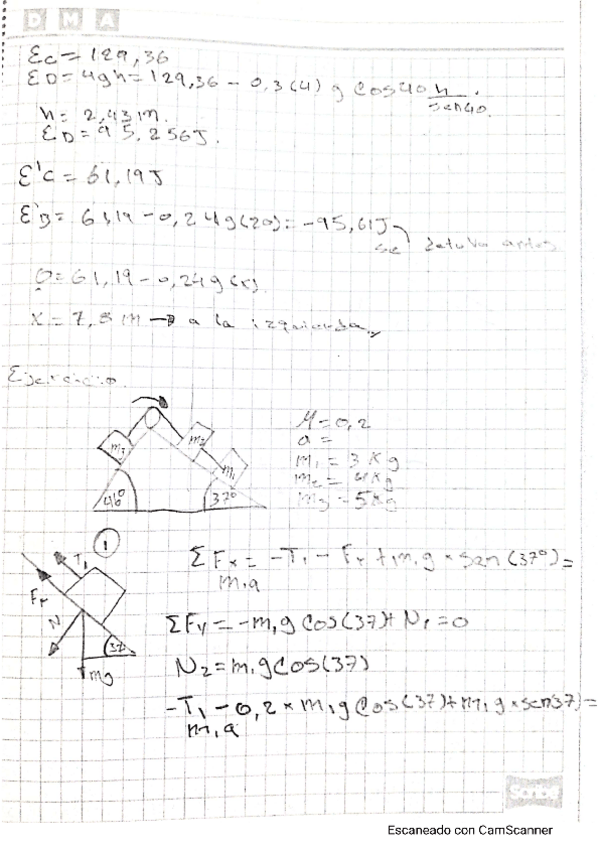 D M A
Ec = 129,36
ED = 4gh = 129,36 - 0,3(4) g cos40 h/sen40.
h = 2,43m.
ED = 95,256J.
E'c = 61,19J
E'B = 61,19 - 0,24g(20) = -95,61J
se detuvo antes
0 = 61,19 - 0,24g(x).
x = 7,8m → a la izquierda,,
Ejercicio.
m3 m2 m1
46° 37°
M = 0,2
a =
m1 = 3 Kg
m2 = 4Kg
m3 = 5Kg
①
T1
Fr
N
37
mg
ΣFx = -T1 - Fr + m1g × sen(37°) =
m1a
ΣFy = -m1g cos(37) + N1 = 0
N2 = m1g cos(37)
-T1 - 0,2 × m1g cos(37) + m1g × sen37) =
m1a
Scribe
Escaneado con CamScanner